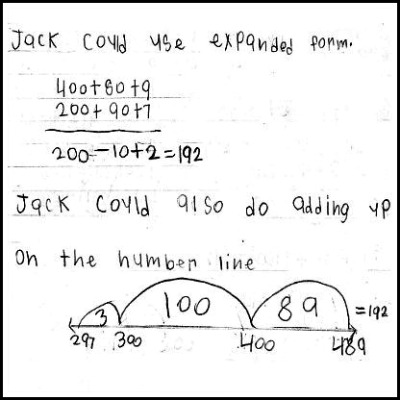 Jack could use expanded form.
400+80+9
200+90+7
200-10+2=192
Jack could also do adding up
on the number line
3 100 89 =192
297 300 400 489